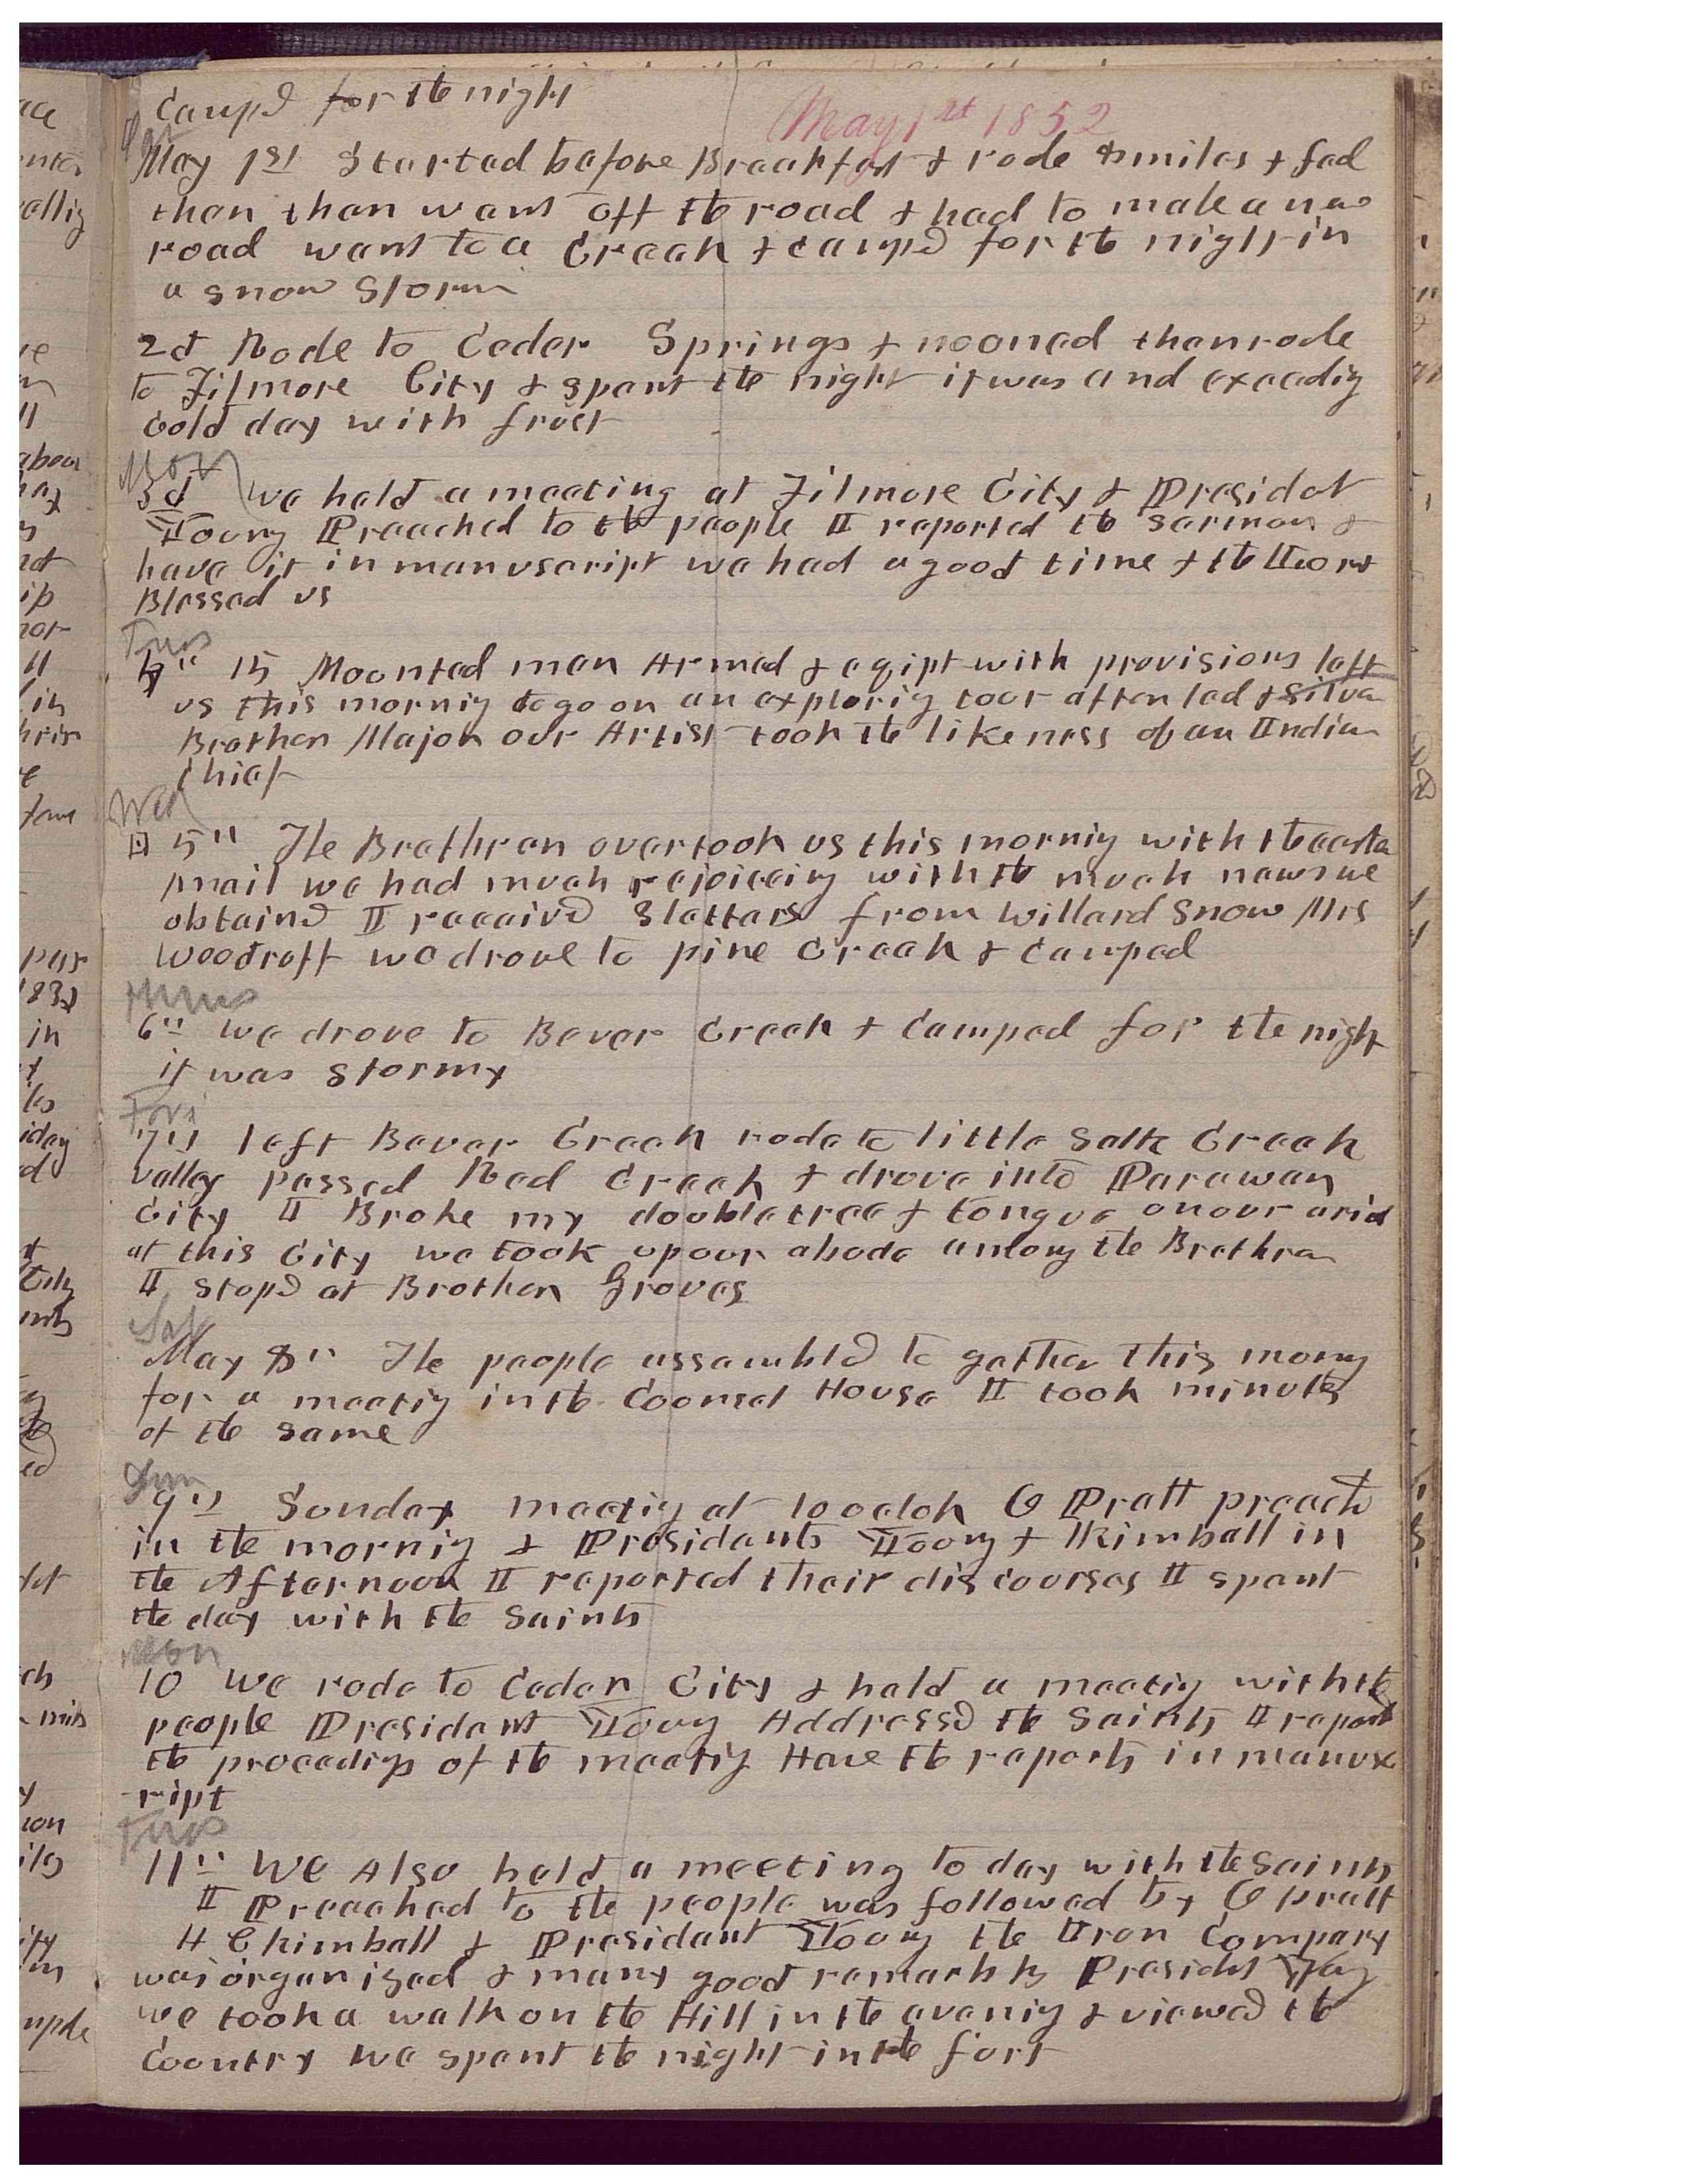 Campd for the night
May 1st 1852
Sat
May 1st Started before Breakfast & rode 8 miles & fed
then then went off the road & had to make a new
road went to a Creek & campd for the night in
a snow storm
2d Rode to Ceder Springs & nooned then rode
to Filmore City & spent the night it was and exceedig
cold day with frost
Mon
3d we held a meeting at Filmore City & Presidet
Young Preached to the people I reported the sermon &
have it in manuscript we had a good time & the Lord
Blessed us
Tues
4" 15 Mounted men Armed & eqipt with provisions left
us this mornig to go on an explorig tour after led & Silver
Brother Major our Artist took the likeness of an Indian
Chief
Wed
5" The Brethren overtook us this mornig with the easte
mail we had much rejoiceing with the much news we
obtaind I receivd 3 letters from Willard Snow Mrs
Woodruff we drove to pine Creek & camped
Thurs
6" we drove to Bever Creek & Camped for the night
it was stormy
Fri
7" left Bever Creek rode to little Salt Creek
valley passed Red Creek & drove into Parawan
City I Broke my doubletree & tongue on our arivl
at this City we took up our abode among the Brethren
I stopd at Brother Groves
Sat
May 8" The people assembld to gether this morng
for a meetig in the Councel House I took minutes
of the same
Sun
9" Sunday meetig at 10 oclok O Pratt preach
in the mornig & Presidents Young & Kimball in
the Afternoon I reported their discourses I spent
the day with the Saints
Mon
10 We rode to Ceder City & held a meetig with the
people President Young Addressd the Saints I report
the proceedigs of the meetig Have the reports in manusc
ript
Tues
11" We Also held a meeting to day with the Saints
I Preached to the people was followed by O pratt
H C kimball & President Young the Iron Company
was organized & many good remarks by Presidet Yong
we took a walk on the Hill in the evenig & viewed the
Country we spent the night in the fort